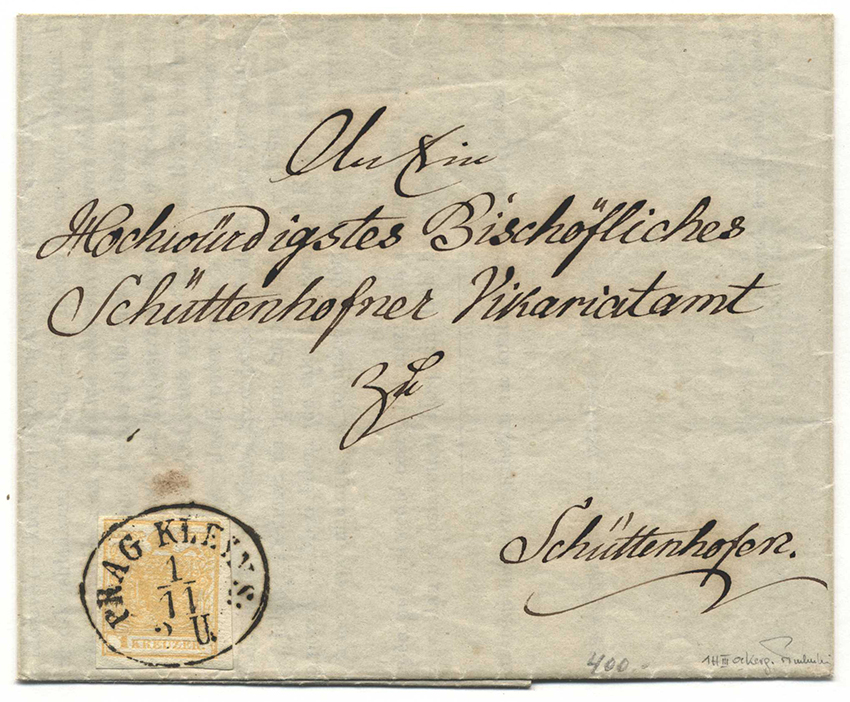 An Ein
Hochwürdigstes Bischöfliches
Schüttenhofner Vikariatamt
zu
Schüttenhofen.
PRAG KLEINS.
1
11
2 U.
1 KREUZER
400.-
1H III